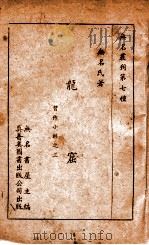 無名叢刊第七種
無名氏著
龍窟
習作小輯之三
無名書屋主編
真善美圖書出版公司出版